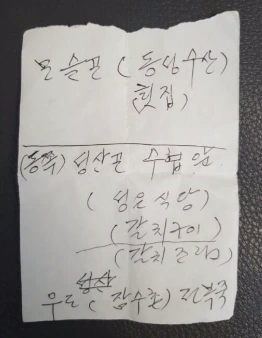 모슬포 (동성수산)
(횟집)
(동쪽) 성산포 수협 앞
(성은식당)
(갈치구이)
(갈치조림)
성산
우도 (장수촌) 전복죽